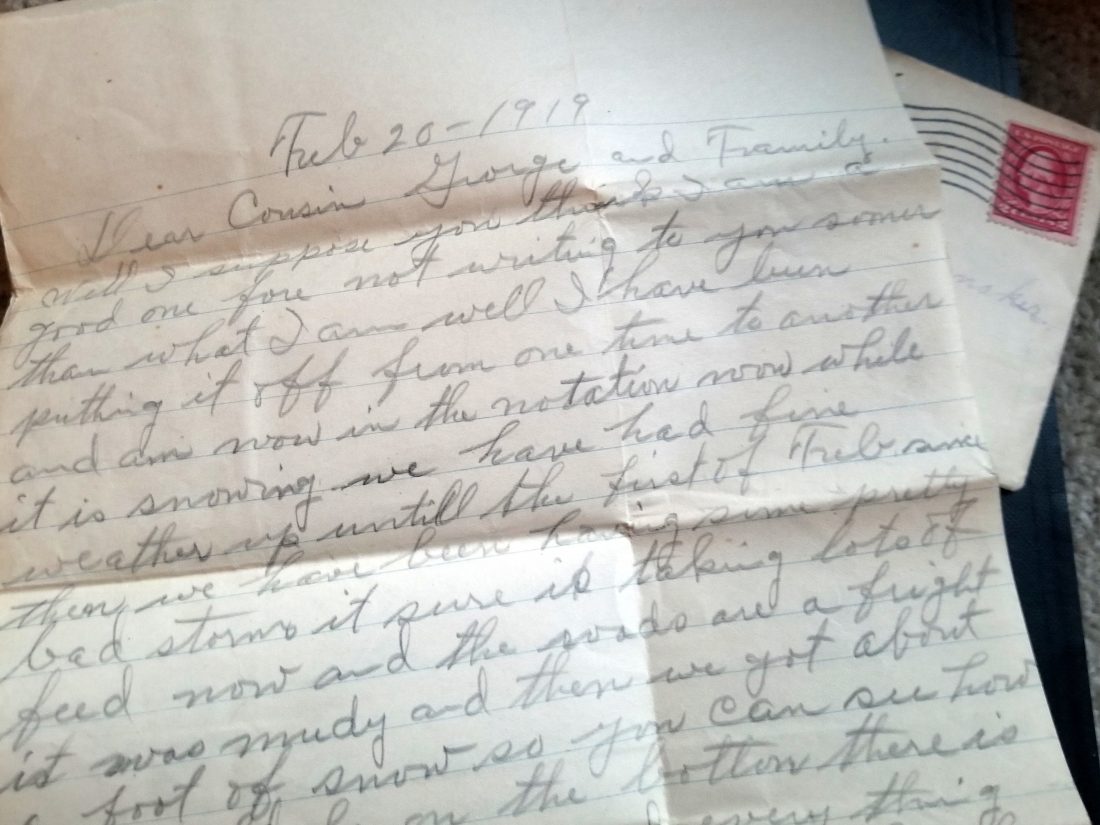 Feb 20-1919
Dear Cousin George and Family.
Well I suppose you think I am a
good one fore not writing to you sooner
than what I am well I have been
putting it off from one time to another
and am now in the notation now while
it is snowing we have had fine
weather up untill the first of Feb. since
then we have been having some pretty
bad storms it sure is taking lots of
feed now and the roads are a fright
it was mudy and then we got about
a foot of snow so you can see how
on the bottom there is
every thing